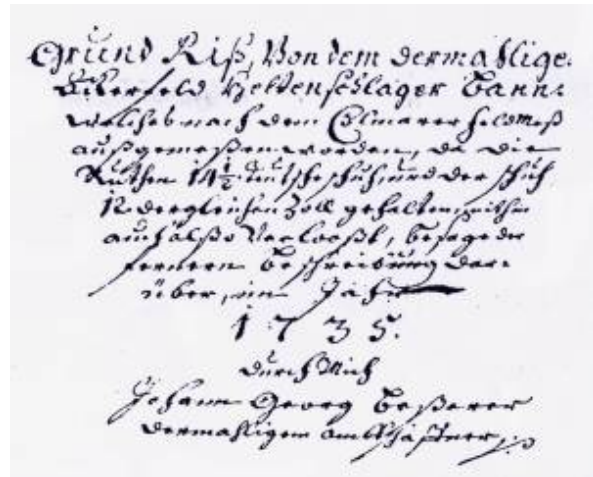 Grund Riß, Von dem dermahlige.
Ackerfeld Hettenschlager Bann:
welches nach dem Colmarer feldmeß
außgemeßen worden, da die
Ruthen 14½ teutsche schuh und der schuh
12 dergleichen Zoll gehalten, seithin
auch also Verlooßt, besage der
fernern beschreibung dar-
über, im Jahr
1735.
durch Mich
Johann Georg Beßerer
dermahligem ambtschafner